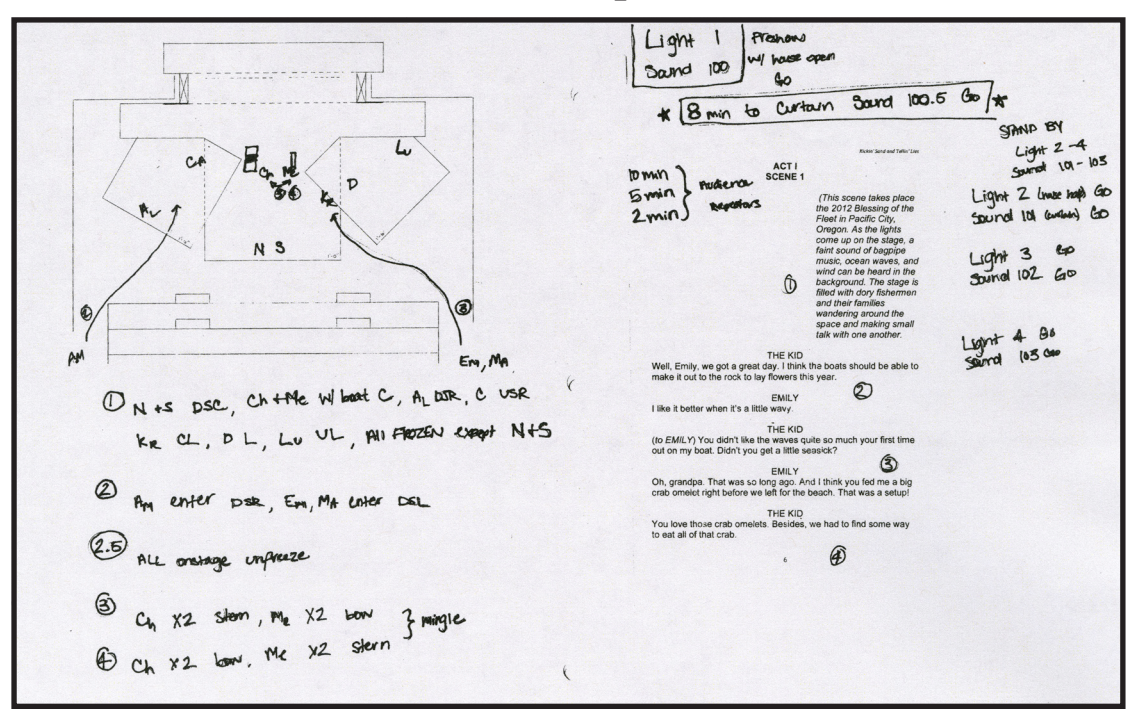 CA
Lu
Ch
Me
③ ④
D
AL
KR
N S
②
②
AM
Em, MA
① N + S DSC, Ch + Me w/ boat C, AL DSR, C USR
KR CL, D L, Lu UL, All FROZEN except N+S
② AM enter DSR, Em, MA enter DSL
2.5 ALL onstage unfreeze
③ Ch X2 stern, Me X2 bow } mingle
④ Ch X2 bow, Me X2 stern
Light 1
Sound 100
Preshow
w/ house open
Go
* 8 min to Curtain Sound 100.5 Go *
10 min
5 min
2 min
} Audience
Kickin' Sand and Tellin' Lies
ACT I
SCENE 1
(This scene takes place
the 2012 Blessing of the
Fleet in Pacific City,
Oregon. As the lights
come up on the stage, a
faint sound of bagpipe
music, ocean waves, and
wind can be heard in the
background. The stage is
filled with dory fishermen
and their families
wandering around the
space and making small
talk with one another.
①
THE KID
Well, Emily, we got a great day. I think the boats should be able to
make it out to the rock to lay flowers this year.
②
EMILY
I like it better when it's a little wavy.
THE KID
(to EMILY) You didn't like the waves quite so much your first time
out on my boat. Didn't you get a little seasick?
③
EMILY
Oh, grandpa. That was so long ago. And I think you fed me a big
crab omelet right before we left for the beach. That was a setup!
THE KID
You love those crab omelets. Besides, we had to find some way
to eat all of that crab.
④
6
STAND BY
Light 2 - 4
Sound 101 - 103
Light 2 (house half) Go
Sound 101 (curtain) Go
Light 3 Go
Sound 102 Go
Light 4 Go
Sound 103 Go